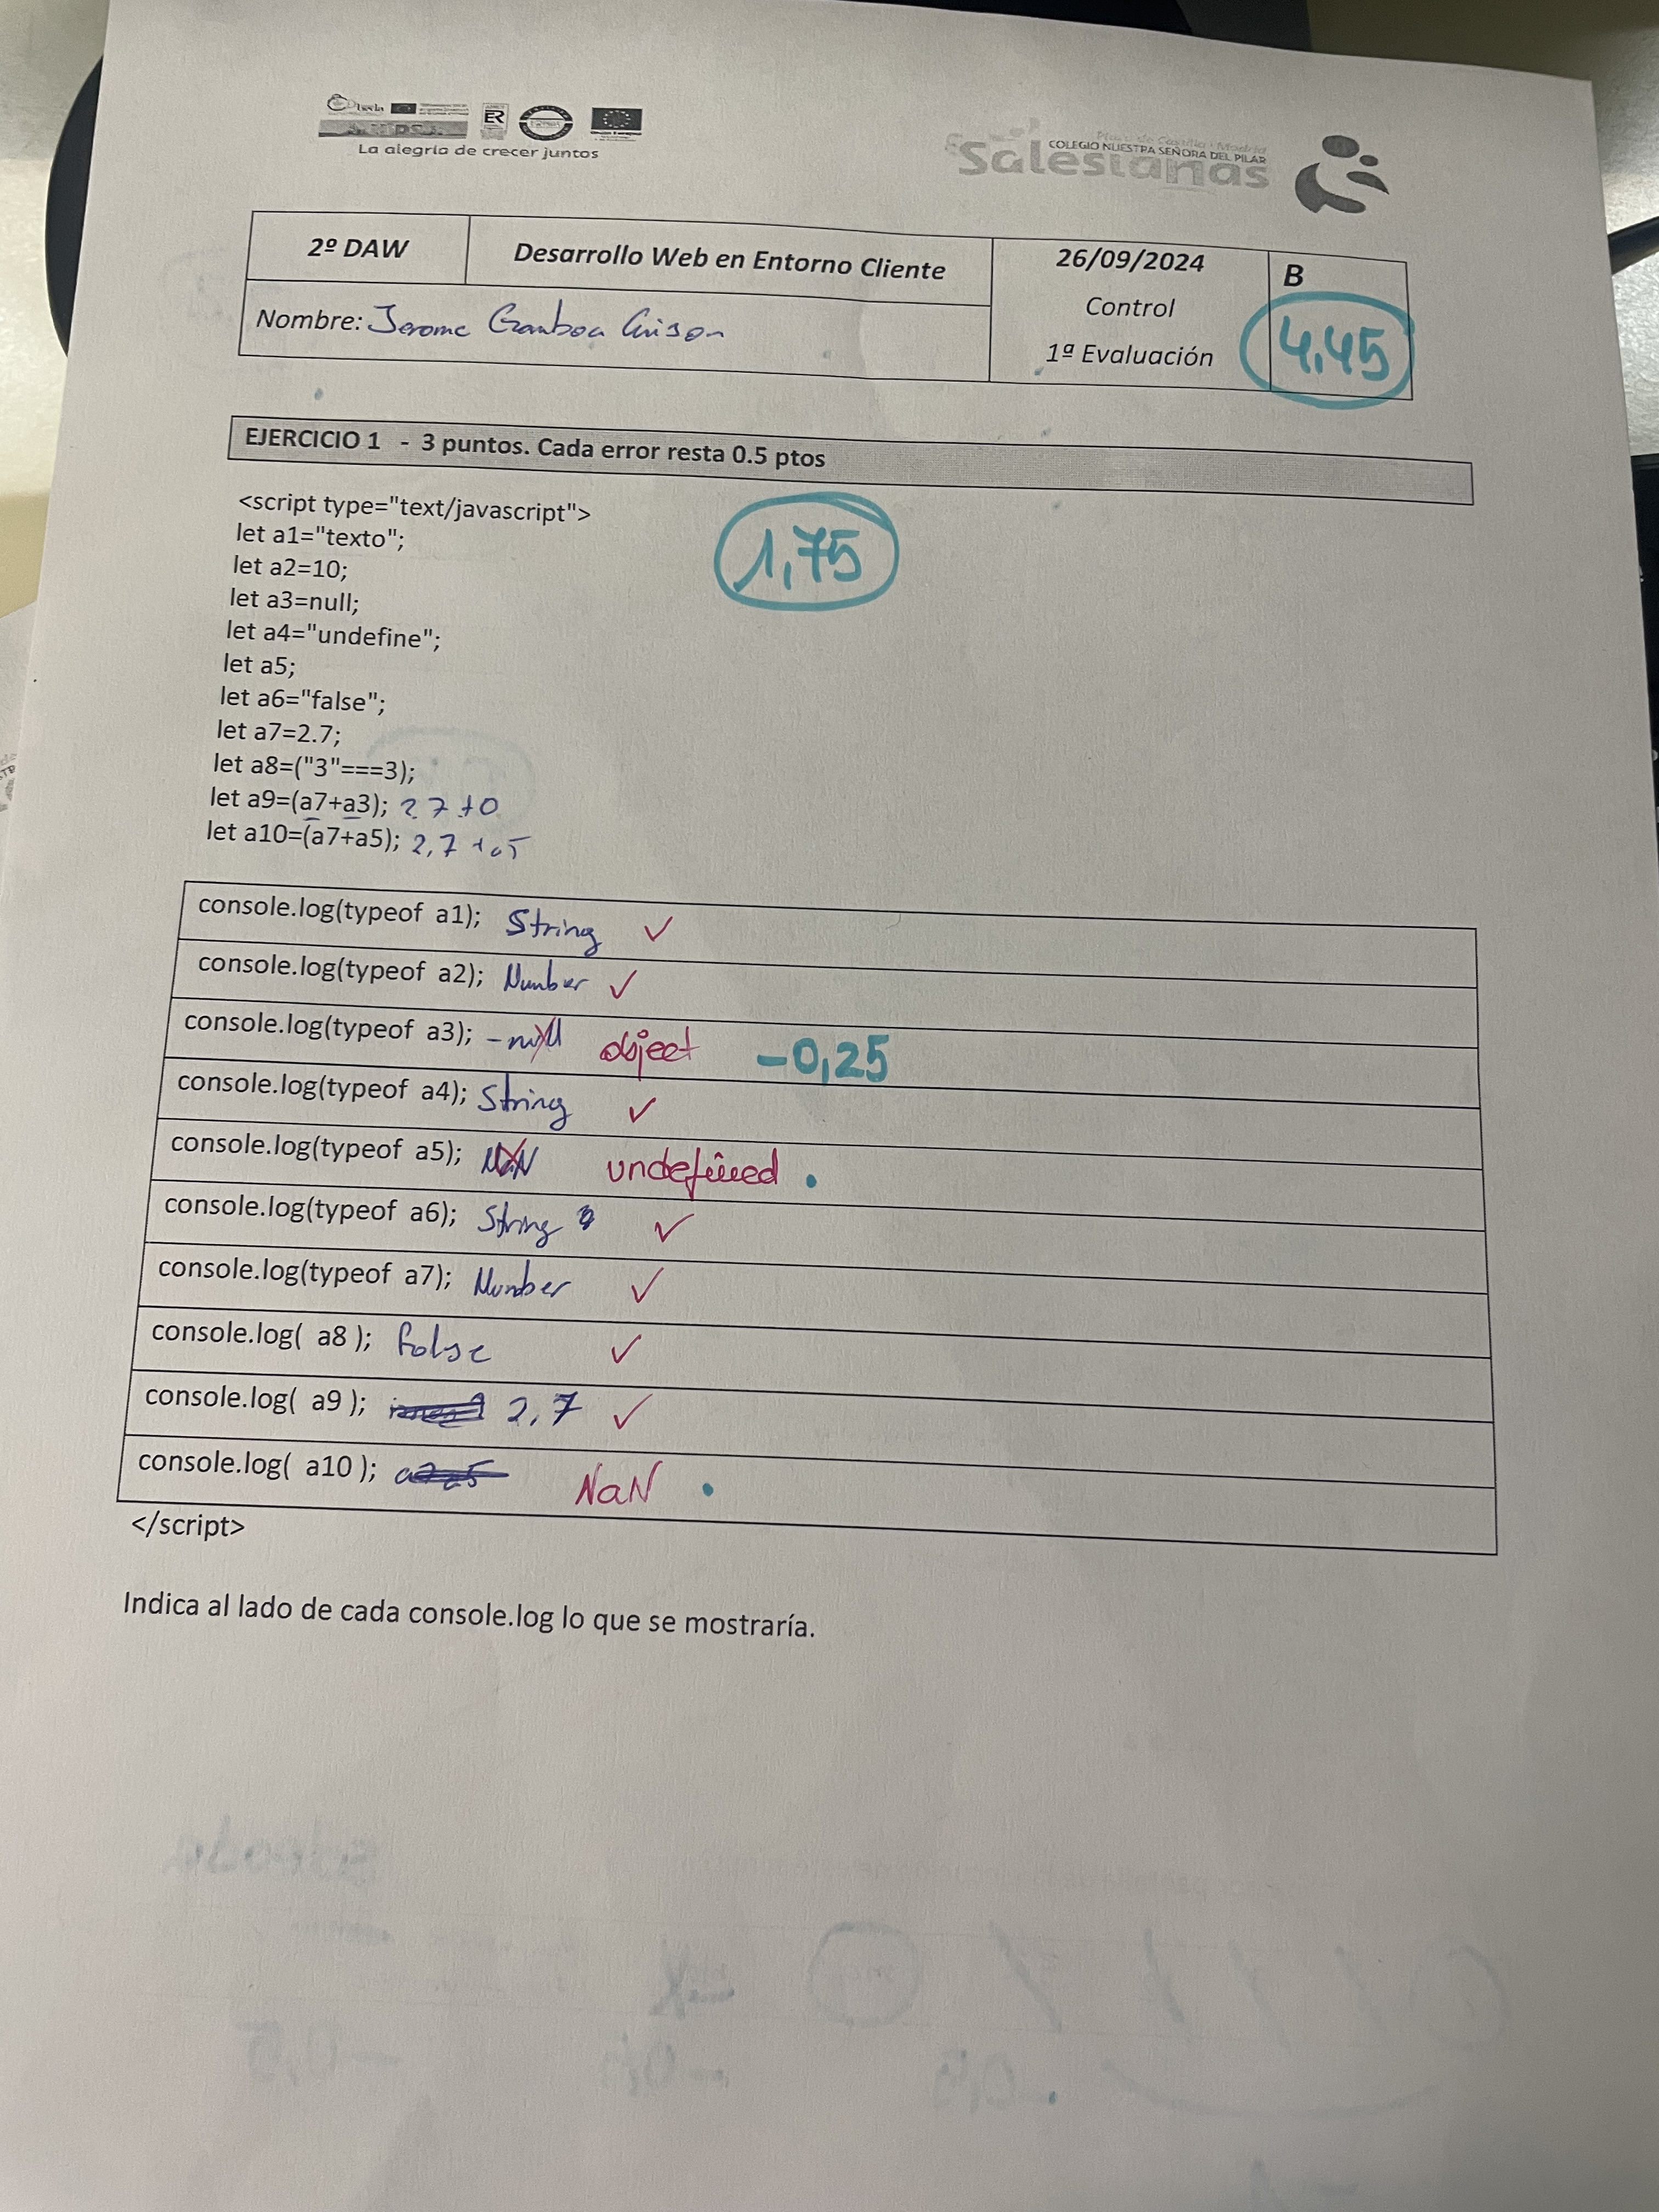 La alegría de crecer juntos
Salesianas
COLEGIO NUESTRA SEÑORA DEL PILAR
2º DAW
Desarrollo Web en Entorno Cliente
26/09/2024
Control
1ª Evaluación
B
4,45
Nombre: Jerome Gamboa
EJERCICIO 1 - 3 puntos. Cada error resta 0.5 ptos
1,75
<script type="text/javascript">
let a1="texto";
let a2=10;
let a3=null;
let a4="undefine";
let a5;
let a6="false";
let a7=2.7;
let a8=("3"===3);
let a9=(a7+a3); 2 7 +0
let a10=(a7+a5); 2,7 +
console.log(typeof a1); String ✓
console.log(typeof a2); Number ✓
console.log(typeof a3); - null object -0,25
console.log(typeof a4); String ✓
console.log(typeof a5); NaN undefined .
console.log(typeof a6); String ✓
console.log(typeof a7); Number ✓
console.log( a8 ); False ✓
console.log( a9 ); 2,7 ✓
console.log( a10 ); NaN .
</script>
Indica al lado de cada console.log lo que se mostraría.